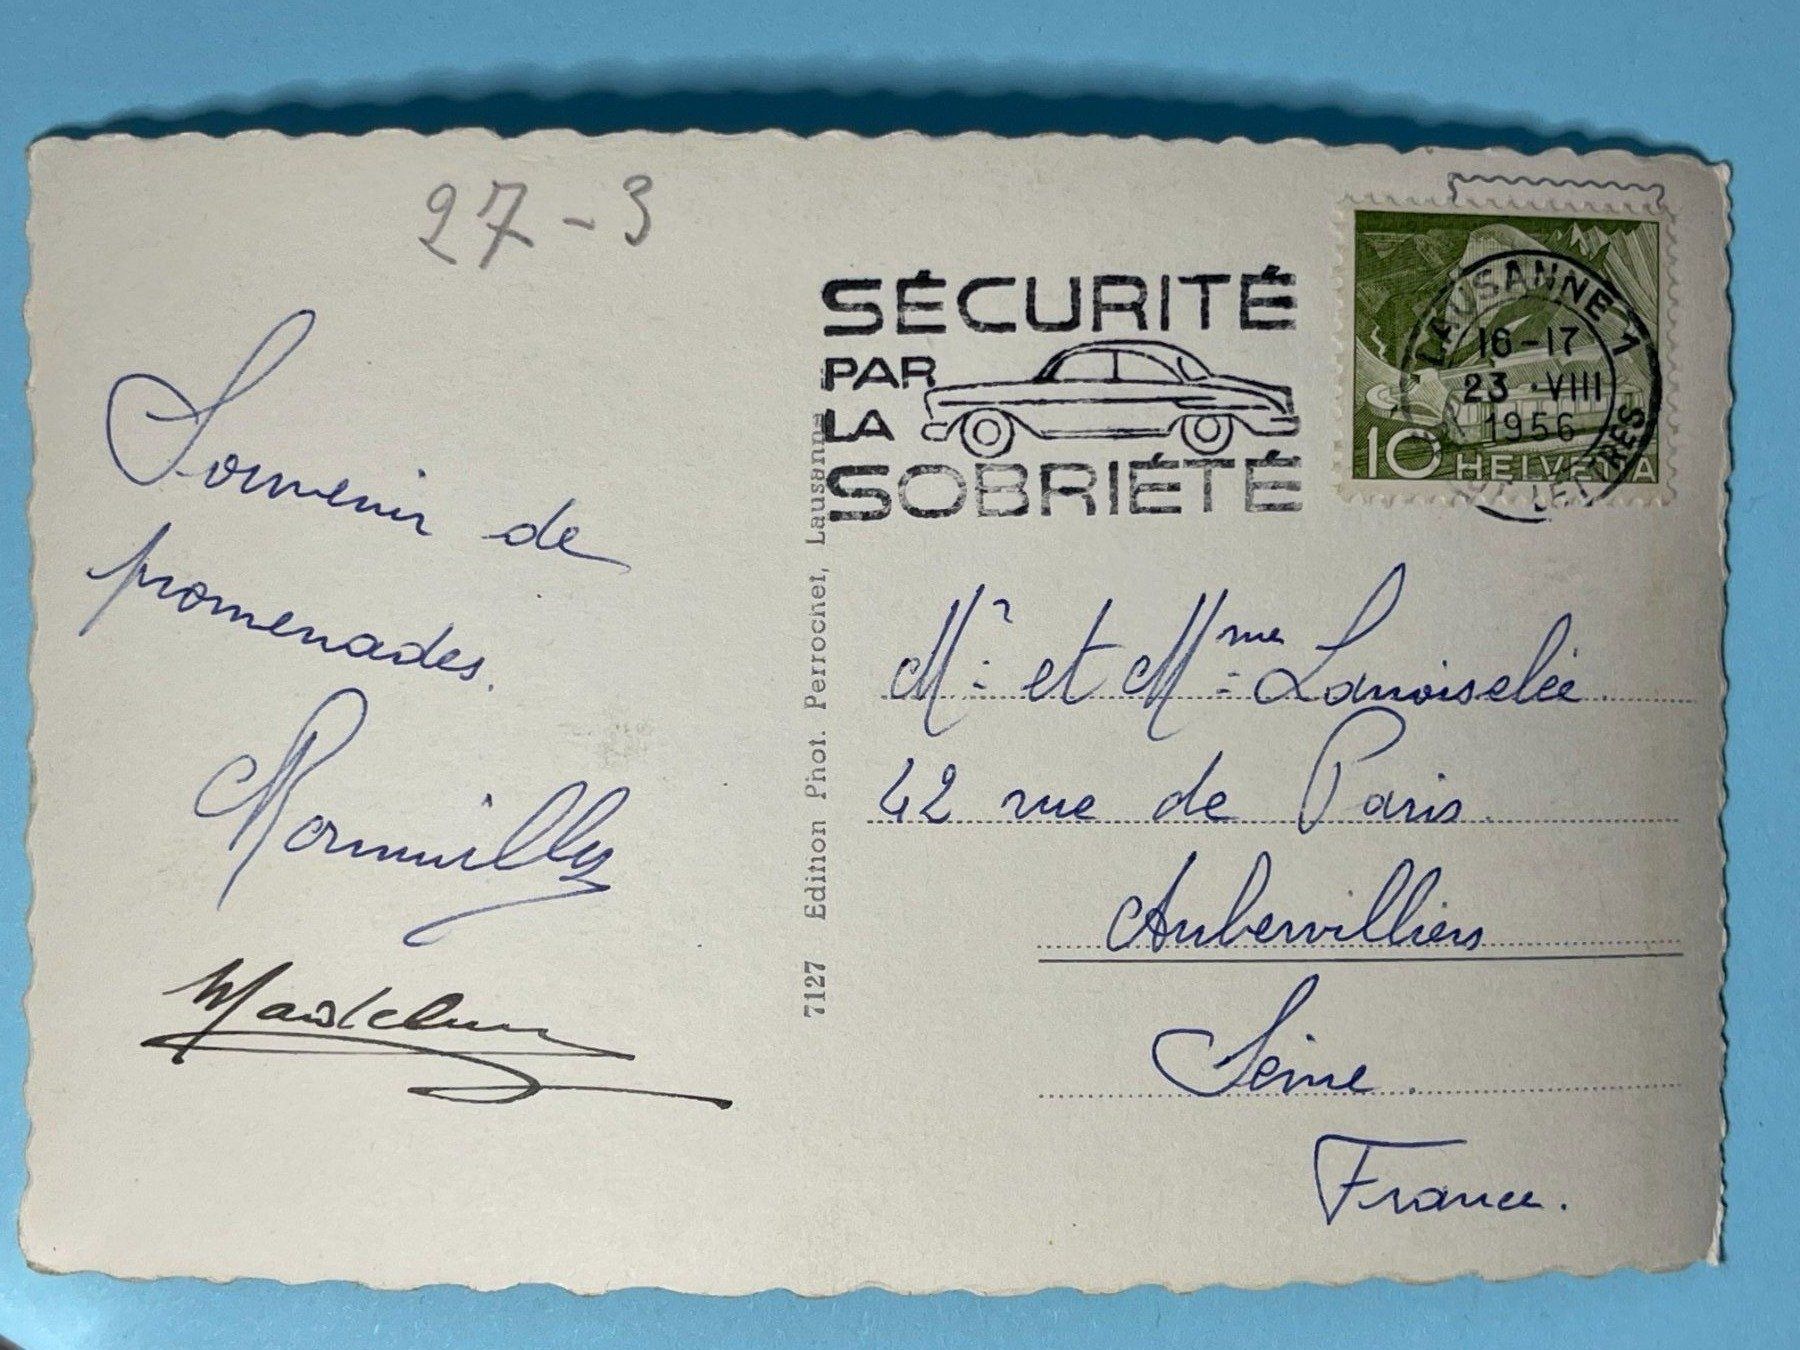 27-3
Souvenir de
promenades.
7127 Edition Phot. Perrochet, Lausanne
SÉCURITÉ
PAR
LA
SOBRIÉTÉ
LAUSANNE 1
16-17
23.VIII
1956
10 HELVETIA
Mr et Mme Lanoiselée.
42 rue de Paris.
Aubervilliers
Seine.
France.